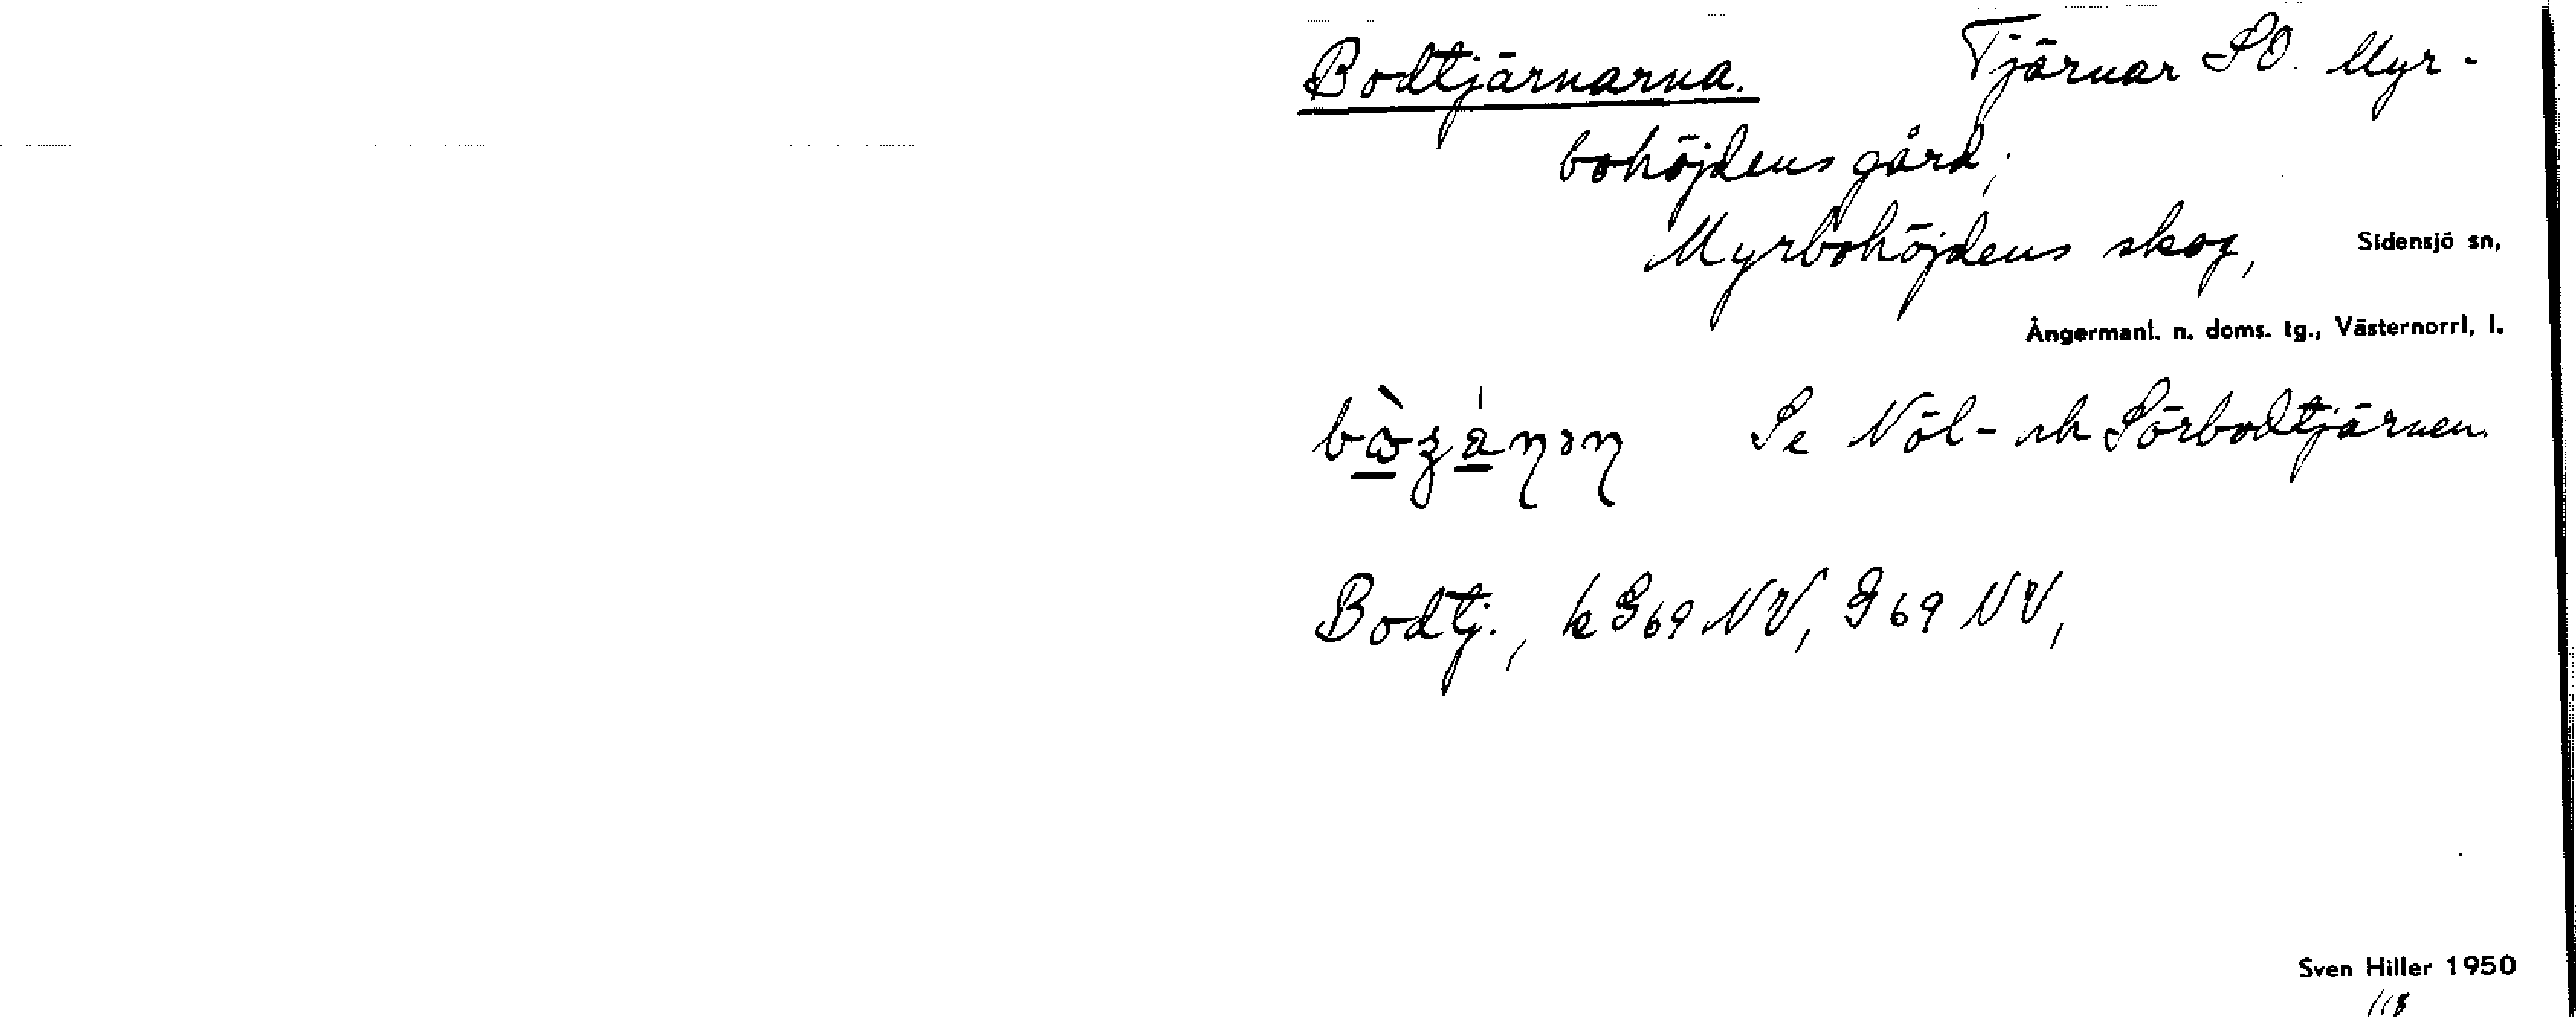 Bodtjärnarna. Tjärnar SO. Myr-
bohöjdens gård;
Myrbohöjdens skog, Sidensjö sn,
Ångermanl. n. doms. tg., Västernorrl. l.
Se Nöl- och Sörbodtjärnen.
Bodtj., k G69 NV, G 69 NV,
Sven Hiller 1950